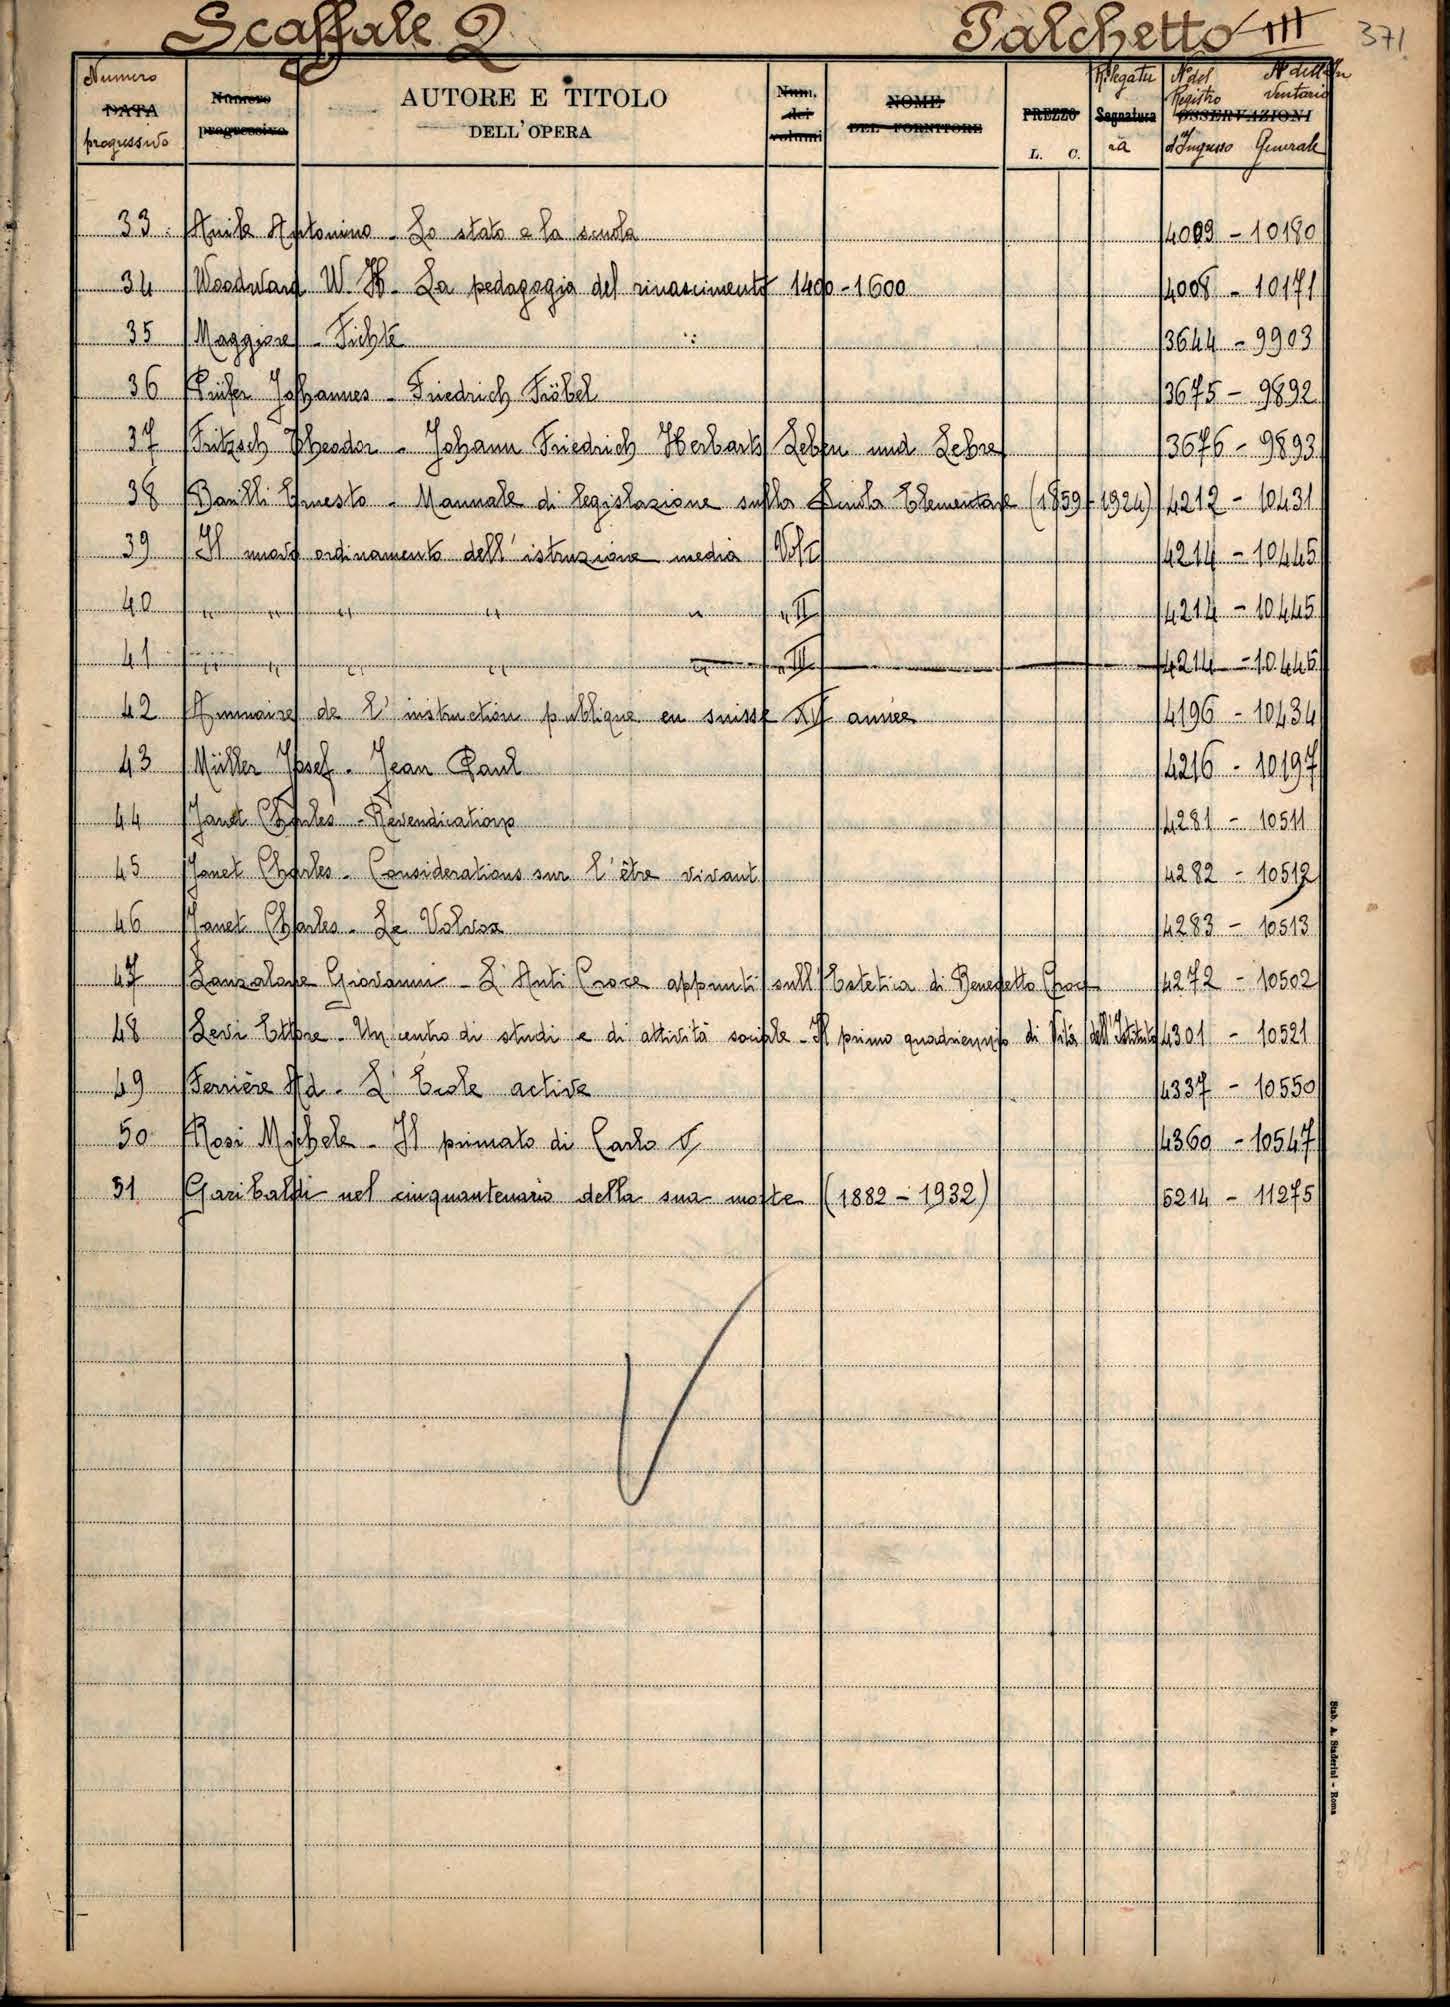 Scaffale 2 Palchetto III 371
Numero DATA progressivo
Numero progressivo
AUTORE E TITOLO
DELL'OPERA
Num. dei volumi
NOME DEL FORNITORE
PREZZO
L. C.
Rilegatu Segnatura ra
N° del Registro d'Ingresso
N° dell'In ventario Generale
OSSERVAZIONI
33 Anile Antonino - Lo stato e la scuola 4009 - 10180
34 Woodward W. H. - La pedagogia del rinascimento 1400-1600 4008 - 10171
35 Maggiore - Fichte 3644 - 9903
36 Prüfer Johannes - Friedrich Fröbel 3675 - 9892
37 Fritzsch Theodor - Johann Friedrich Herbarts Leben und Lehre 3676 - 9893
38 Ernesto - Manuale di legislazione sulla Scuola Elementare (1859-1924) 4212 - 10431
39 Il nuovo ordinamento dell'istruzione media Vol I 4214 - 10445
40 " " " " " " II 4214 - 10445
41 " " " " " " III 4214 - 10445
42 Annuaire de l'instruction publique en suisse XV année 4196 - 10434
43 Müller Josef - Jean Paul 4216 - 10197
44 Janet Charles - Revendications 4281 - 10511
45 Janet Charles - Considerations sur l'être vivant 4282 - 10512
46 Janet Charles - Le Volvox 4283 - 10513
47 Lanzalone Giovanni - L'Anti Croce appunti sull'Estetica di Benedetto Croce 4272 - 10502
48 Levi Ettore - Un centro di studi e di attività sociale - Il primo quadriennio di Vita dell'Istituto 4301 - 10521
49 Ferrière Ad. - L'École active 4337 - 10550
50 Rosi Michele - Il primato di Carlo V 4360 - 10547
51 Garibaldi nel cinquantenario della sua morte (1882-1932) 5214 - 11275
Stab. A. Staderini - Roma